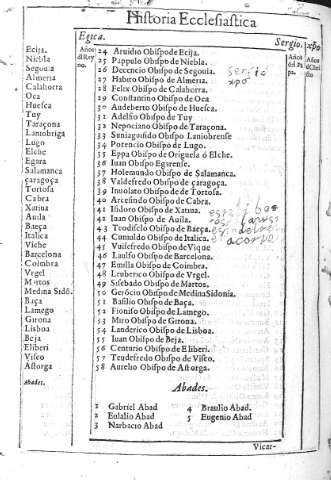 Historia Ecclesiastica
Egica.
Sergio. xpõ
Años del Rey
no.
Años del Pa
pa.
Años d Chri
sto
Ecija.
Niebla
Segouia
Almeria
Calahorra
Oca
Huesca
Tuy
Taraçona
Laniobriga
Lugo
Elche
Egara
Salamanca
çaragoça
Tortosa
Cabra
Xatiua
Auila
Baeça
Italica
Viche
Barcelona
Coimbra
Vrgel
Martos
Medina Sidõ.
Baça
Lamego
Girona
Lisboa
Beja
Eliberi
Viseo
Astorga
Abades.
24 Aruidio Obispo de Ecija.
25 Pappulo Obispo de Niebla.
26 Decencio Obispo de Segouia.
27 Habito Obispo de Almeria.
28 Felix Obispo de Calahorra.
29 Constantino Obispo de Oca
30 Audeberto Obispo de Huesca.
31 Adelfio Obispo de Tuy
32 Nepociano Obispo de Taraçona.
33 Suniagisido Obispo Laniobrense
34 Potencio Obispo de Lugo.
35 Eppa Obispo de Origuela ó Elche.
36 Iuan Obispo Egarense.
37 Holemundo Obispo de Salamanca.
38 Valdefredo Obispo de çaragoça.
39 Inuolato Obispo de de Tortosa.
40 Arcesindo Obispo de Cabra.
41 Isidoro Obispo de Xatiua.
42 Iuan Obispo de Auila.
43 Teodisclo Obispo de Baeça.
44 Cumaldo Obispo de Italica.
45 Vuisefredo Obispo de Vique
46 Laulfo Obispo de Barcelona.
47 Emilla Obispo de Coimbra.
48 Leuberico Obispo de Vrgel.
49 Sisebado Obispo de Martos.
50 Gerõcio Obispo de Medina Sidonia.
51 Basilio Obispo de Baça.
52 Fioniso Obispo de Lamego.
53 Miro Obispo de Girona.
54 Landerico Obispo de Lisboa.
55 Iuan Obispo de Beja.
56 Centurio Obispo de Eliberi.
57 Teudefredo Obispo de Viseo.
58 Aurelio Obispo de Astorga.
sergio
xpõ
Abades.
1 Gabriel Abad
2 Eulalio Abad
3 Narbacio Abad
4 Braulio Abad.
5 Eugenio Abad
Vicar-